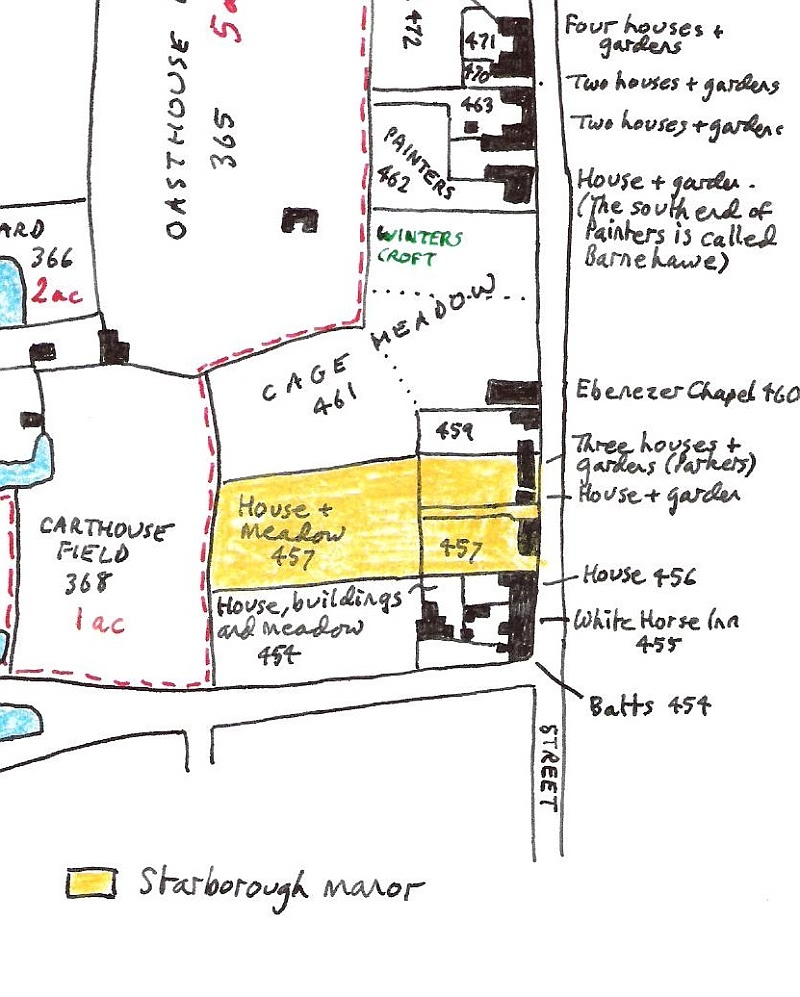 OASTHOUSE
365
472
471
470
463
Four houses +
gardens
Two houses + gardens
Two houses + gardens
PAINTERS
462
House + garden.
(The south end of
Painters is called
Barnehawe)
ARD
366
2ac
WINTERS
CROFT
CAGE MEADOW
461
Ebenezer Chapel 460
459
Three houses +
gardens (Parkers)
House + garden
House +
Meadow
457
457
CARTHOUSE
FIELD
368
1 ac
House 456
House, buildings
and meadow
454
White Horse Inn
455
Batts 454
STREET
Starborough manor